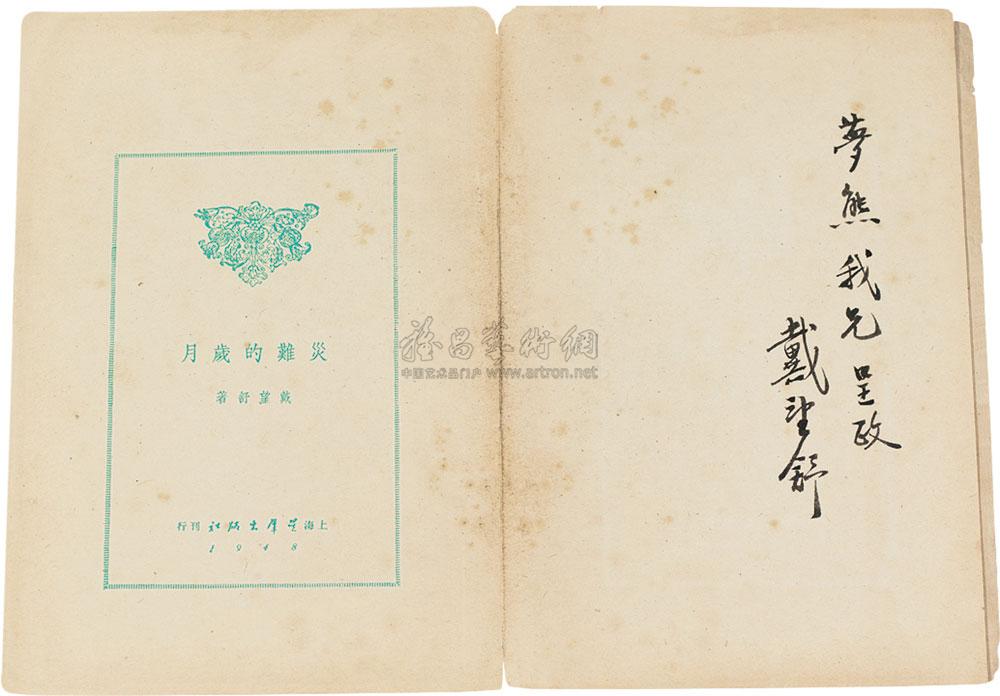 夢熊我兄 呈政
戴望舒
災難的歲月
戴望舒著
上海星群出版社刊行
1948
雅昌藝術網
中国艺术品门户 www.artron.net